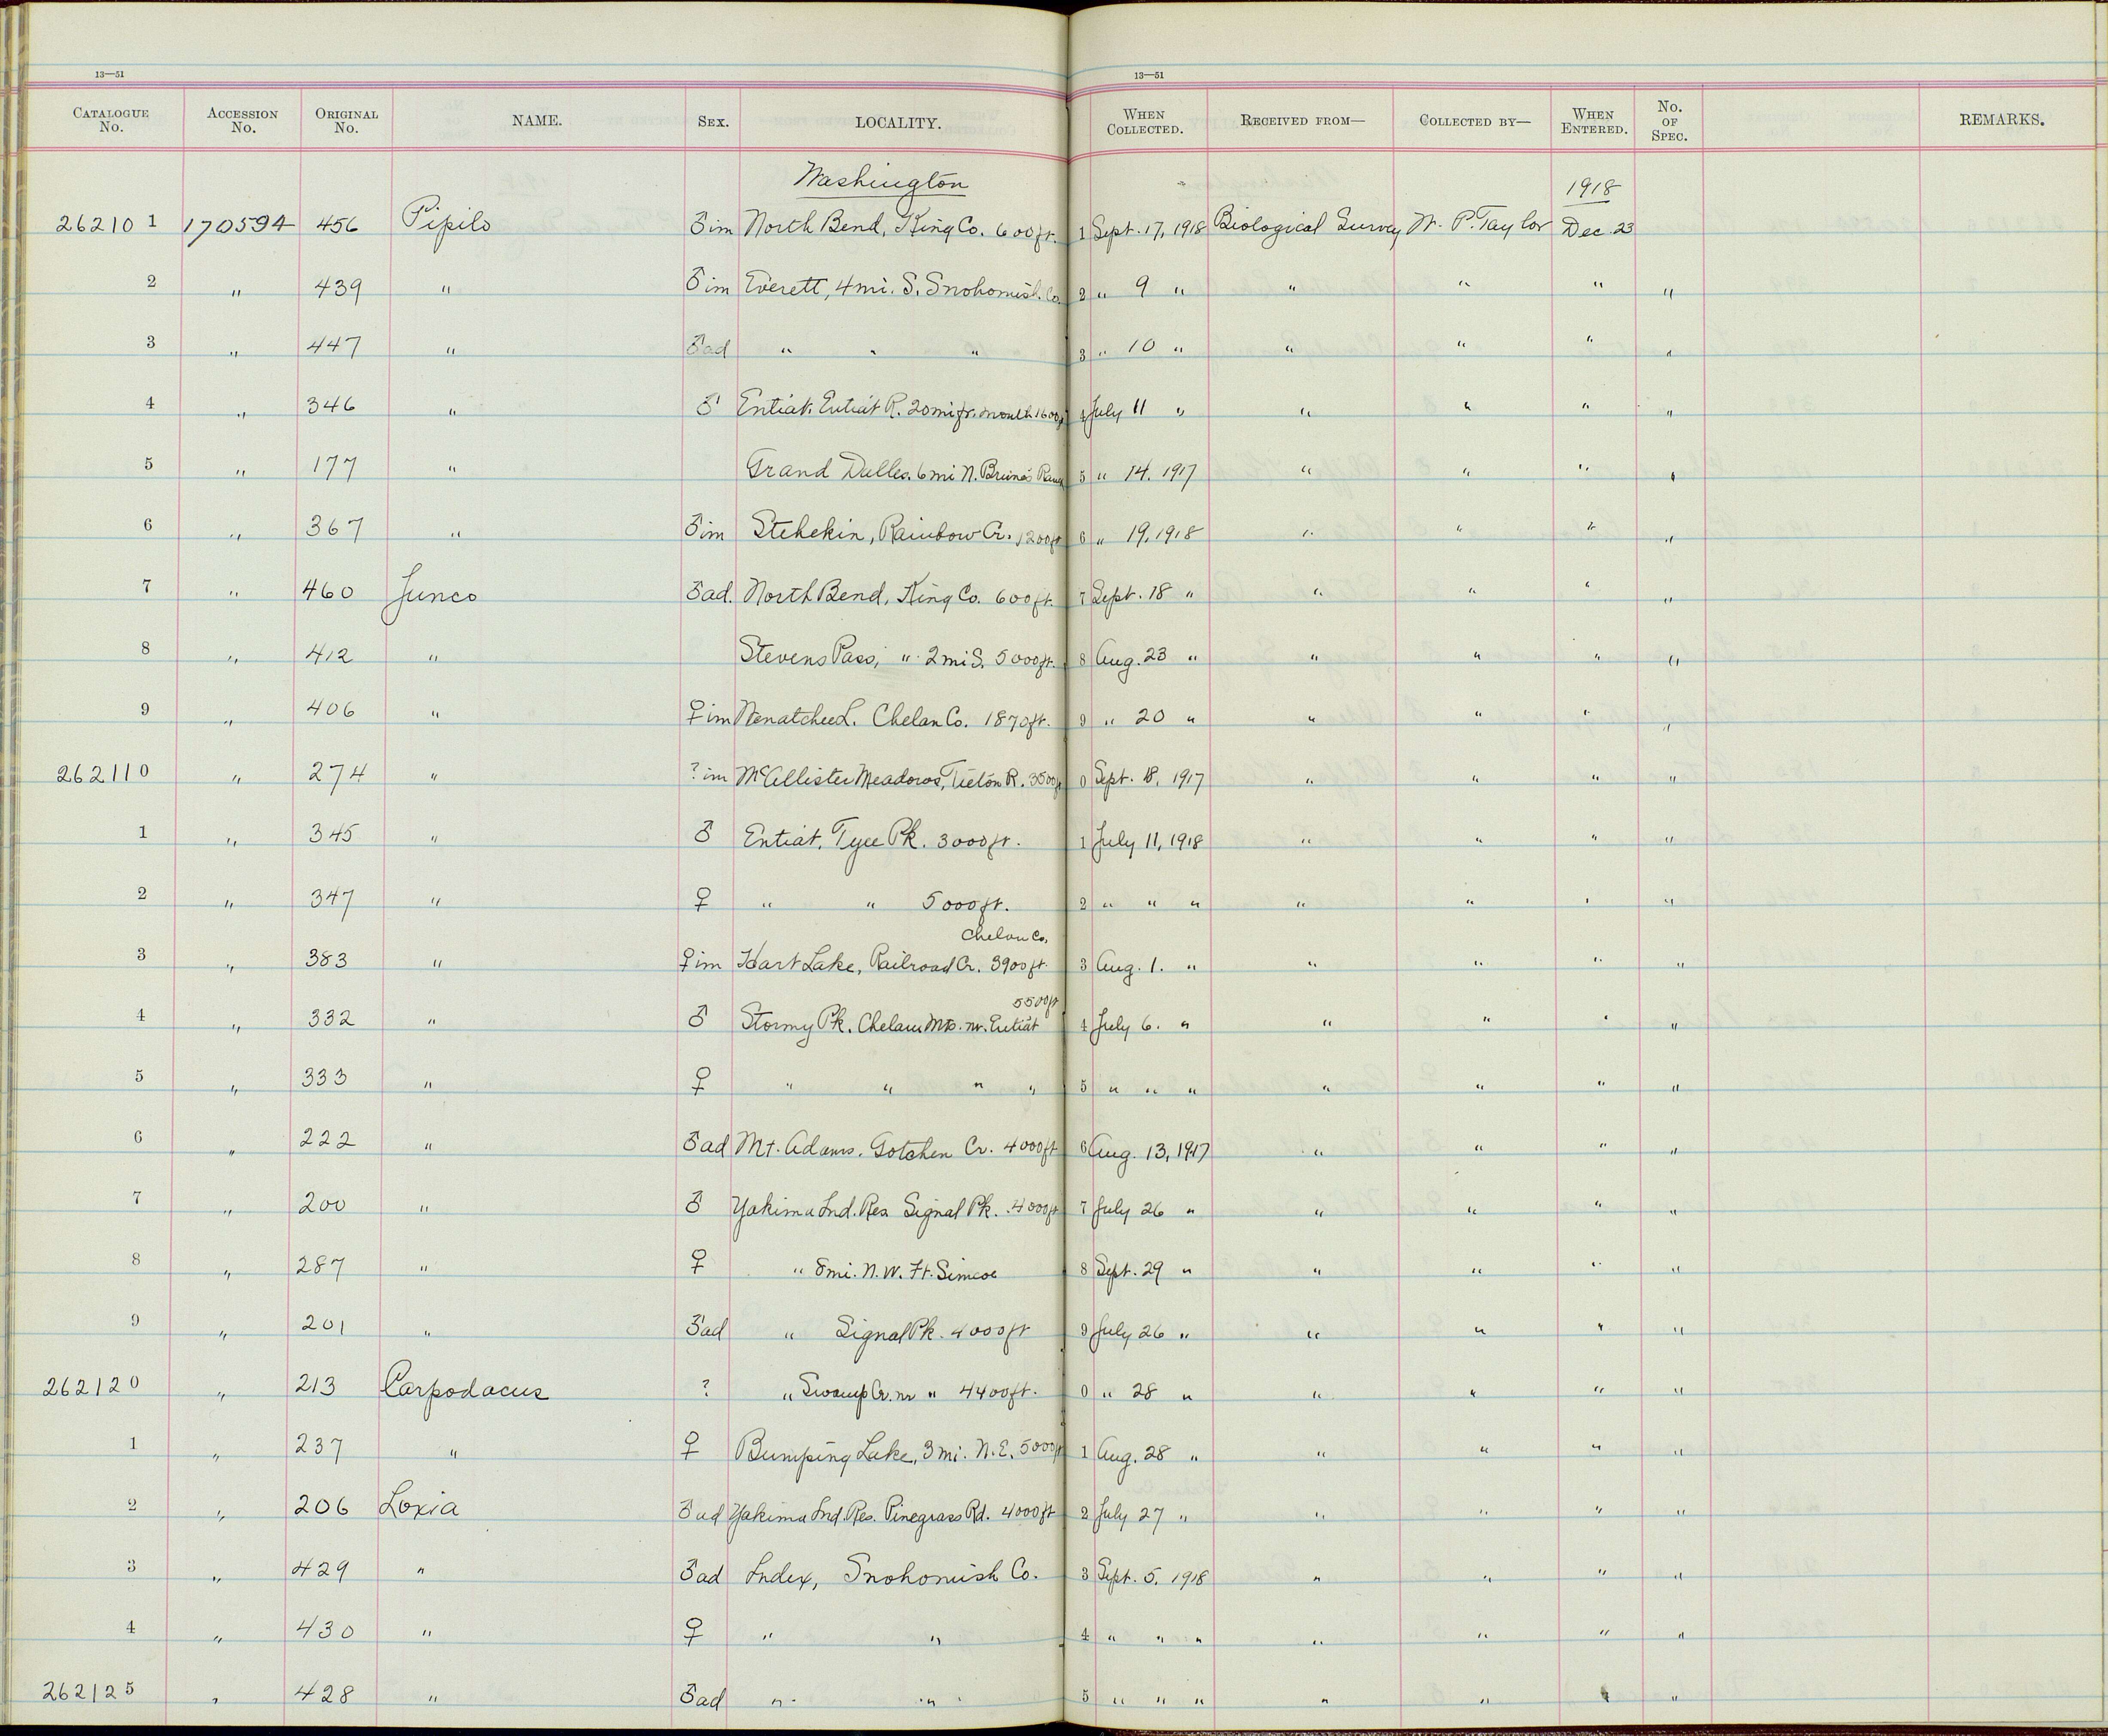 13—51 13—51
CATALOGUE No. ACCESSION No. ORIGINAL No. NAME. SEX. LOCALITY. WHEN COLLECTED. RECEIVED FROM— COLLECTED BY— WHEN ENTERED. No. OF SPEC. REMARKS.
Washington 1918
262101 170594 456 Pipilo ♂ im North Bend, King Co. 600 ft. 1 Sept. 17, 1918 Biological Survey W. P. Taylor Dec. 23
2 " 439 " ♂ im Everett, 4 mi. S. Snohomish. Co. 2 " 9 " " " " "
3 " 447 " ♂ ad " " " 3 " 10 " " " " "
4 " 346 " ♂ Entiat. Entiat R. 20 mi fr. mouth 1600 ft 4 July 11 " " " " "
5 " 177 " Grand Dalles. 6 mi N. 5 " 14. 1917 " " " "
6 " 367 " ♂ im Stehekin, Rainbow Cr. 1200 ft 6 " 19, 1918 " " " "
7 " 460 Junco ♂ ad. North Bend, King Co. 600 ft. 7 Sept. 18 " " " " "
8 " 412 " Stevens Pass, " 2 mi S. 5000 ft. 8 Aug. 23 " " " " "
9 " 406 " ♀ im Wenatchee L. Chelan Co. 1870 ft. 9 " 20 " " " " "
262110 " 274 " ? im McAllister Meadows, Tieton R. 3500 ft 0 Sept. 18, 1917 " " " "
1 " 345 " ♂ Entiat, Tyee Pk. 3000 ft. 1 July 11, 1918 " " " "
2 " 347 " ♀ " " 5000 ft. 2 " " " " " " "
Chelan Co.
3 " 383 " ♀ im Hart Lake, Railroad Cr. 3900 ft. 3 Aug. 1. " " " " "
5500 ft
4 " 332 " ♂ Stormy Pk. Chelan Mts. nr. Entiat 4 July 6. " " " " "
5 " 333 " ♀ " " " " 5 " " " " " " "
6 " 222 " ♂ ad Mt. Adams. Gotchen Cr. 4000 ft 6 Aug. 13, 1917 " " " "
7 " 200 " ♂ Yakima Ind. Res. Signal Pk. 4000 ft 7 July 26 " " " " "
8 " 287 " ♀ " 8 mi. N.W. Ft. Simcoe 8 Sept. 29 " " " " "
9 " 201 " ♂ ad " Signal Pk. 4000 ft 9 July 26 " " " " "
262120 " 213 Carpodacus ? " Swamp Cr. nr " 4400 ft. 0 " 28 " " " " "
1 " 237 " ♀ Bumping Lake, 3 mi. N.E. 5000 ft 1 Aug. 28 " " " " "
2 " 206 Loxia ♂ ad Yakima Ind. Res. Pinegrass Rd. 4000 ft 2 July 27 " " " " "
3 " 429 " ♂ ad Index, Snohomish Co. 3 Sept. 5. 1918 " " " "
4 " 430 " ♀ " " 4 " " " " " " "
262125 " 428 " ♂ ad " " 5 " " " " " " "